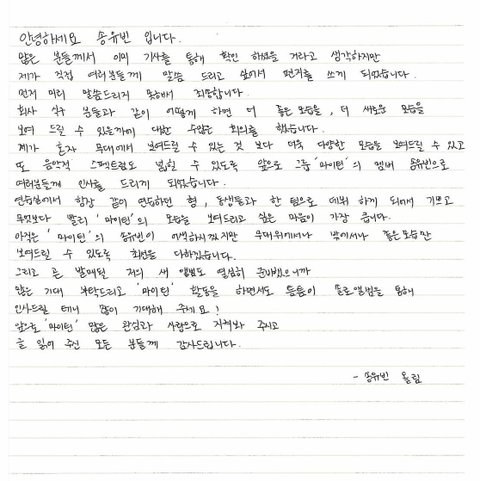 안녕하세요 송유빈 입니다.
많은 분들께서 이미 기사를 통해 확인 하셨을 거라고 생각하지만
제가 직접 여러분들께 말씀 드리고 싶어서 편지를 쓰게 되었습니다.
먼저 미리 말씀드리지 못해서 죄송합니다.
회사 식구 분들과 같이 어떻게 하면 더 좋은모습을, 더 새로운 모습을
보여 드릴 수 있을까에 대한 수많은 회의를 했습니다.
제가 혼자 무대에서 보여드릴 수 있는 것 보다 더욱 다양한 모습을 보여드릴 수 있고
또 음악적 스펙트럼도 넓힐 수 있도록 앞으로 그룹 '마이틴'의 멤버 송유빈으로
여러분들께 인사를 드리게 되었습니다.
연습실에서 항상 같이 연습하던 형, 동생들과 한 팀으로 데뷔 하게 되어서 기쁘고
무엇보다 빨리 '마이틴'의 모습을 보여드리고 싶은 마음이 가장 큽니다.
아직은 '마이틴'의 송유빈이 어색하시겠지만 무대위에서나 밖에서나 좋은모습만
보여드릴 수 있도록 최선을 다하겠습니다.
그리고 곧 발매될 저의 새 앨범도 열심히 준비했으니까
많은 기대 부탁드리고 '마이틴' 활동을 하면서도 틈틈이 솔로앨범을 통해
인사드릴 테니 많이 기대해 주세요!
앞으로 '마이틴' 많은 관심과 사랑으로 지켜봐 주시고
글 읽어 주신 모든 분들께 감사드립니다.
- 송유빈 올림